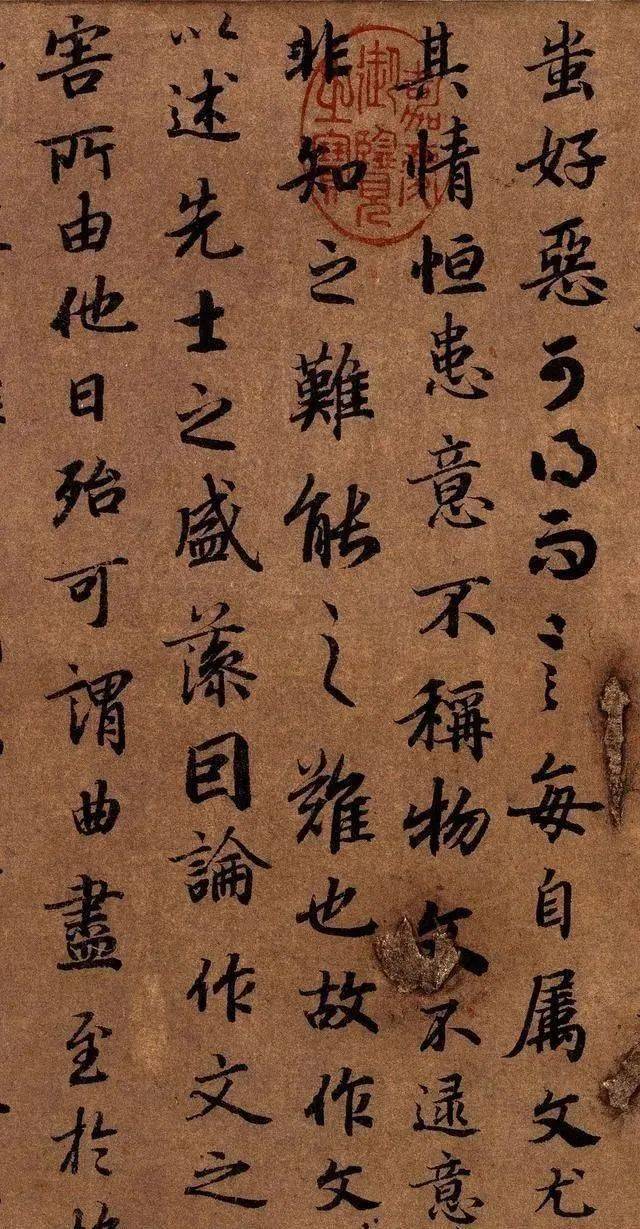 蚩好惡可得而言每自属文尤
其情恒患意不稱物文不逮意
非知之難能之難也故作文
以述先士之盛藻囙論作文之
害所由他日殆可謂曲盡至於
嘉慶御覽之寶